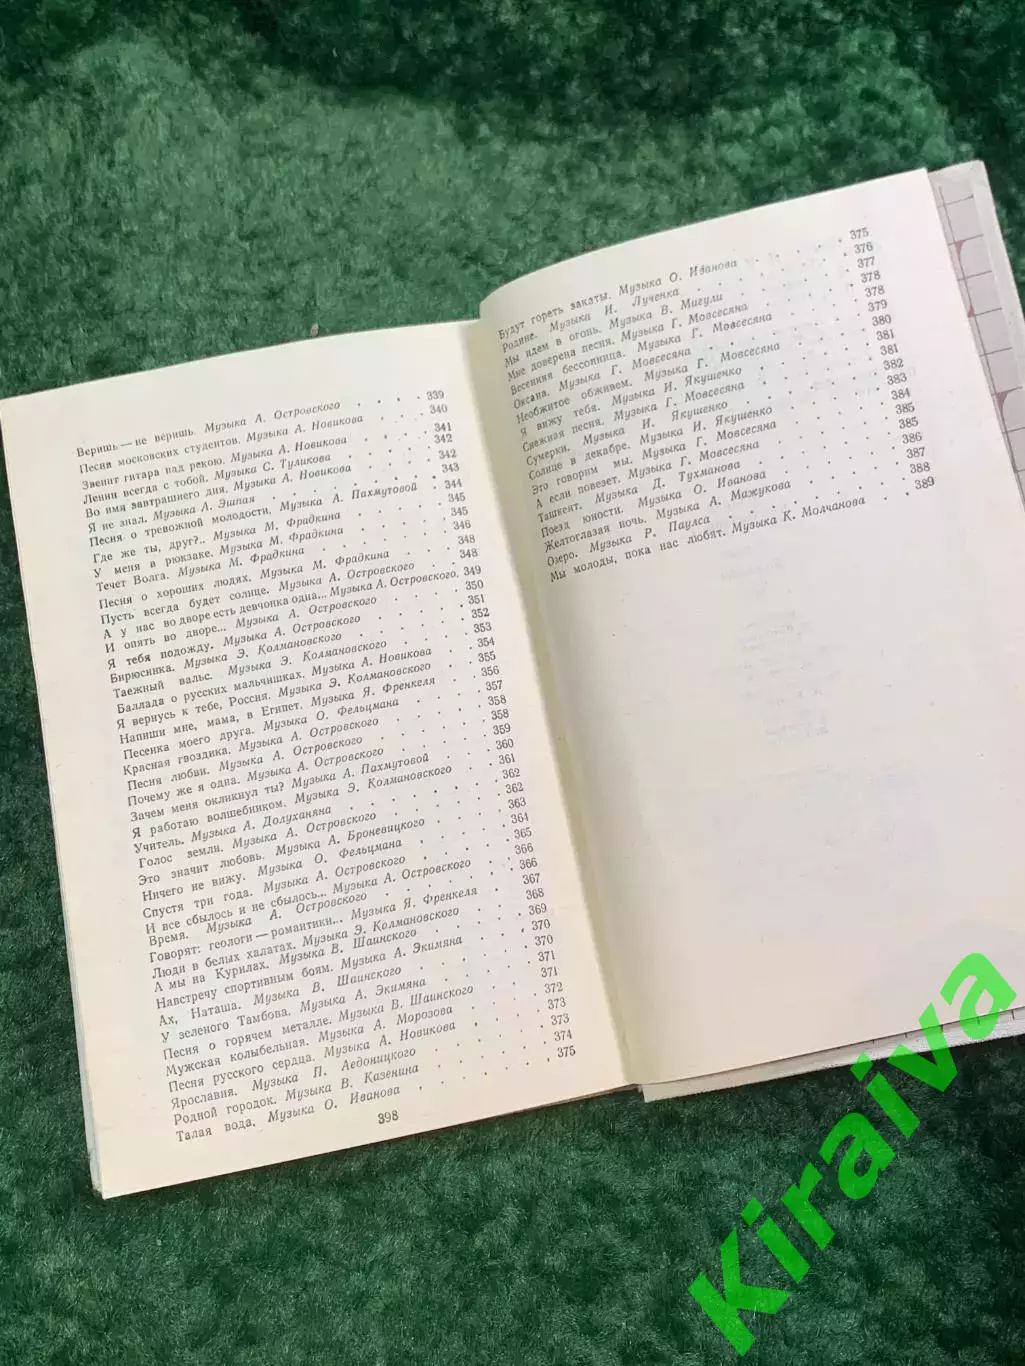 Веришь — не веришь. Музыка А. Островского . . . . 339
Песня московских студентов. Музыка А. Новикова . . 340
Звенит гитара над рекою. Музыка А. Новикова . . . 341
Ленин всегда с тобой. Музыка С. Туликова . . . . 342
Во имя завтрашнего дня. Музыка А. Новикова . . . 342
Я не знал. Музыка А. Эшпая . . . . . . . 343
Песня о тревожной молодости. Музыка А. Пахмутовой . 344
Где же ты, друг?.. Музыка М. Фрадкина . . . . . 345
У меня в рюкзаке. Музыка М. Фрадкина . . . . . 345
Течет Волга. Музыка М. Фрадкина . . . . . . 346
Песня о хороших людях. Музыка М. Фрадкина . . . . 348
Пусть всегда будет солнце. Музыка А. Островского . . 348
А у нас во дворе есть девчонка одна... Музыка А. Островского. 349
И опять во дворе... Музыка А. Островского . . . . 350
Я тебя подожду. Музыка А. Островского . . . . . 351
Бирюсинка. Музыка Э. Колмановского . . . . . . 352
Таежный вальс. Музыка Э. Колмановского . . . . 353
Баллада о русских мальчишках. Музыка А. Новикова . . 354
Я вернусь к тебе, Россия. Музыка Э. Колмановского . . 355
Напиши мне, мама, в Египет. Музыка Я. Френкеля . . 356
Песенка моего друга. Музыка О. Фельцмана . . . . 357
Красная гвоздика. Музыка А. Островского . . . . 358
Песня любви. Музыка А. Островского . . . . . 358
Почему же я одна. Музыка А. Островского . . . . 359
Зачем меня окликнул ты? Музыка А. Пахмутовой . . . 360
Я работаю волшебником. Музыка Э. Колмановского . . 361
Учитель. Музыка А. Долуханяна . . . . . . 362
Голос земли. Музыка А. Островского . . . . . 362
Это значит любовь. Музыка А. Броневицкого . . . . 363
Ничего не вижу. Музыка О. Фельцмана . . . . . 364
Спустя три года. Музыка А. Островского . . . . 365
И все сбылось и не сбылось... Музыка А. Островского . . 366
Время. Музыка А. Островского . . . . . . 366
Говорят: геологи — романтики... Музыка Я. Френкеля . . 367
Люди в белых халатах. Музыка Э. Колмановского . . . 368
А мы на Курилах. Музыка В. Шаинского . . . . . 369
Навстречу спортивным боям. Музыка А. Экимяна . . . 370
Ах, Наташа. Музыка В. Шаинского . . . . . . 370
У зеленого Тамбова. Музыка А. Экимяна . . . . . 371
Песня о горячем металле. Музыка В. Шаинского . . . 371
Мужская колыбельная. Музыка А. Морозова . . . . 372
Песня русского сердца. Музыка А. Новикова . . . . 373
Ярославия. Музыка П. Аедоницкого . . . . . . 373
Родной городок. Музыка В. Казенина . . . . . 374
Талая вода. Музыка О. Иванова . . . . . . 375
398
Будут гореть закаты. Музыка О. Иванова . . . . . 375
Родине. Музыка И. Лученка . . . . . . . 376
Мы идем в огонь. Музыка В. Мигули . . . . . 377
Мне доверена песня. Музыка Г. Мовсесяна . . . . 378
Весенняя бессонница. Музыка Г. Мовсесяна . . . . 378
Оксана. Музыка Г. Мовсесяна . . . . . . . 379
Необжитое обживем. Музыка Г. Мовсесяна . . . . 380
Я вижу тебя. Музыка И. Якушенко . . . . . . 381
Снежная песня. Музыка Г. Мовсесяна . . . . . 381
Сумерки. Музыка И. Якушенко . . . . . . . 382
Солнце в декабре. Музыка И. Якушенко . . . . . 383
Это говорим мы. Музыка Г. Мовсесяна . . . . . 384
А если повезет. Музыка Г. Мовсесяна . . . . . 385
Ташкент. Музыка Д. Тухманова . . . . . . . 385
Поезд юности. Музыка О. Иванова . . . . . . 386
Желтоглазая ночь. Музыка А. Мажукова . . . . . 387
Озеро. Музыка Р. Паулса . . . . . . . . 388
Мы молоды, пока нас любят. Музыка К. Молчанова . . 389
Kiraiva